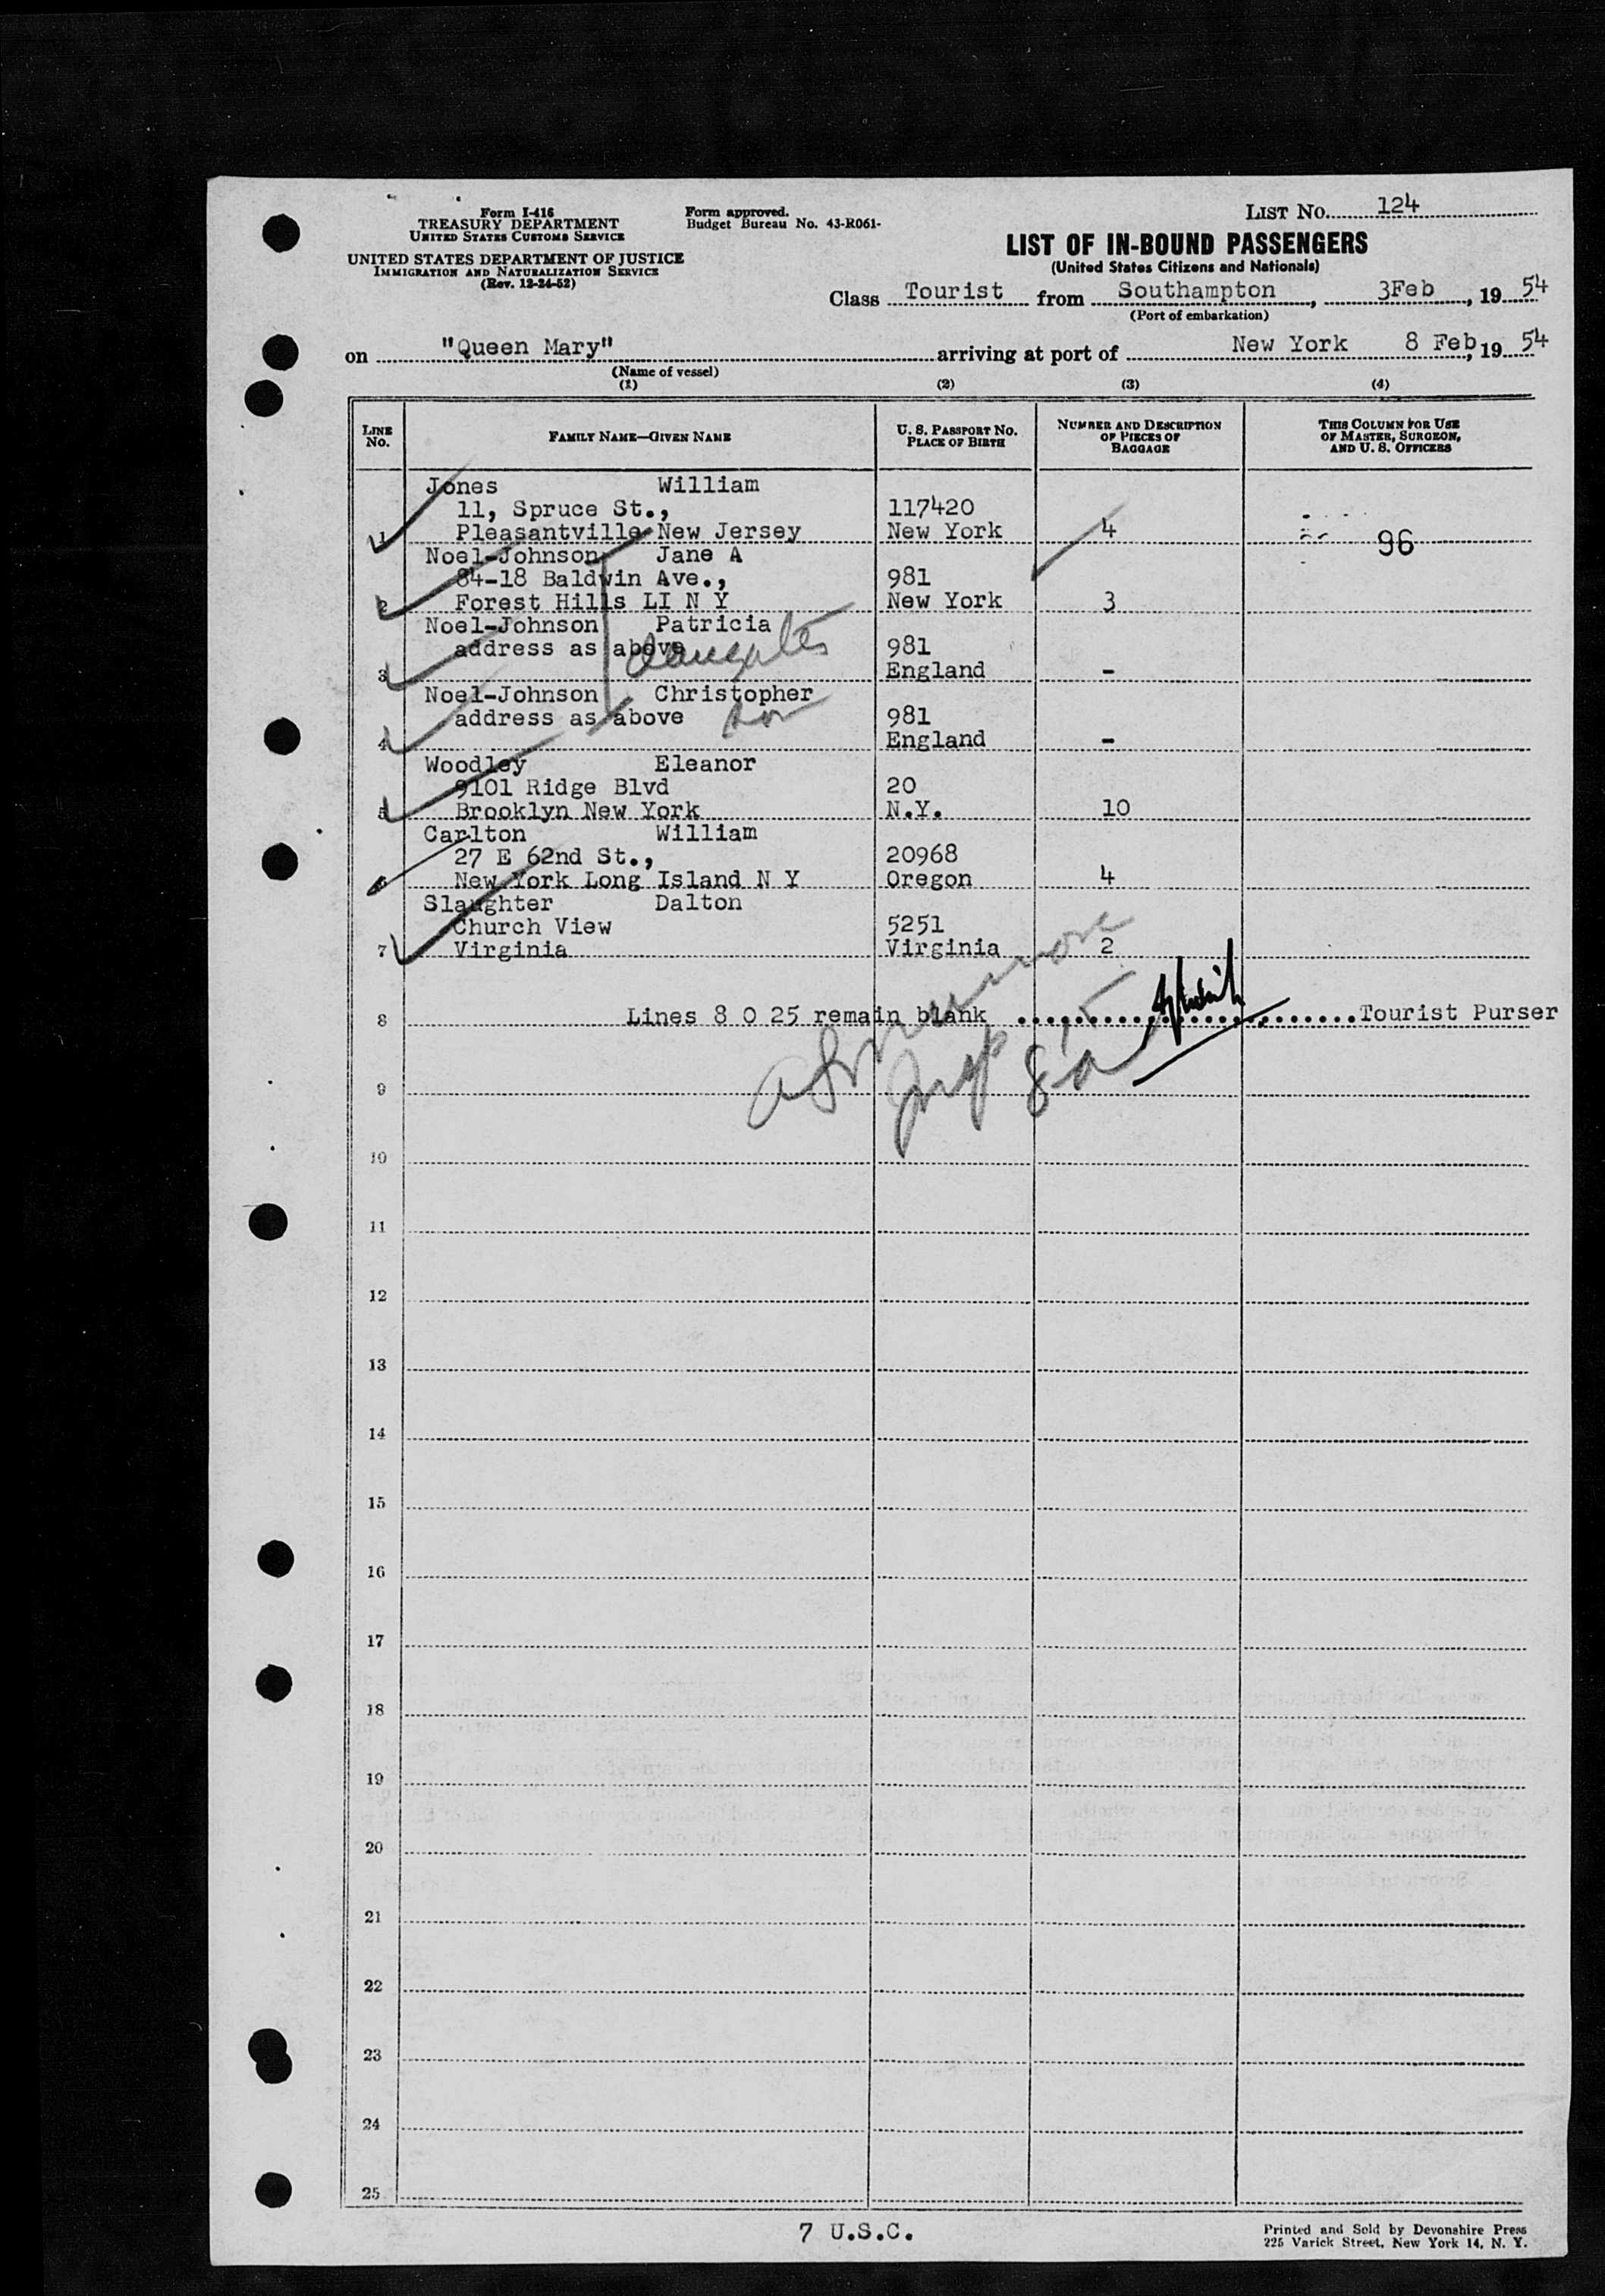 Form I-416
TREASURY DEPARTMENT
UNITED STATES CUSTOMS SERVICE
UNITED STATES DEPARTMENT OF JUSTICE
IMMIGRATION AND NATURALIZATION SERVICE
(Rev. 12-24-52)
Form approved.
Budget Bureau No. 43-R061-
LIST No. 124
LIST OF IN-BOUND PASSENGERS
(United States Citizens and Nationals)
Class Tourist from Southampton, 3Feb, 19 54
(Port of embarkation)
on "Queen Mary" arriving at port of New York 8 Feb, 19 54
(Name of vessel)
(1) (2) (3) (4)
LINE No. FAMILY NAME—GIVEN NAME U. S. PASSPORT No. PLACE OF BIRTH NUMBER AND DESCRIPTION OF PIECES OF BAGGAGE THIS COLUMN FOR USE OF MASTER, SURGEON, AND U. S. OFFICERS
Jones William
11, Spruce St., 117420
1 Pleasantville New Jersey New York 4 96
Noel-Johnson Jane A
84-18 Baldwin Ave., 981
2 Forest Hills LI N Y New York 3
Noel-Johnson Patricia
address as above daughter 981
3 England -
Noel-Johnson Christopher
address as above son 981
4 England -
Woodley Eleanor
9101 Ridge Blvd 20
5 Brooklyn New York N.Y. 10
Carlton William
27 E 62nd St., 20968
6 New York Long Island N Y Oregon 4
Slaughter Dalton
Church View 5251
7 Virginia Virginia 2
8 Lines 8 0 25 remain blank ........................Tourist Purser
9
10
11
12
13
14
15
16
17
18
19
20
21
22
23
24
25
7 U.S.C.
Printed and Sold by Devonshire Press
225 Varick Street, New York 14, N. Y.